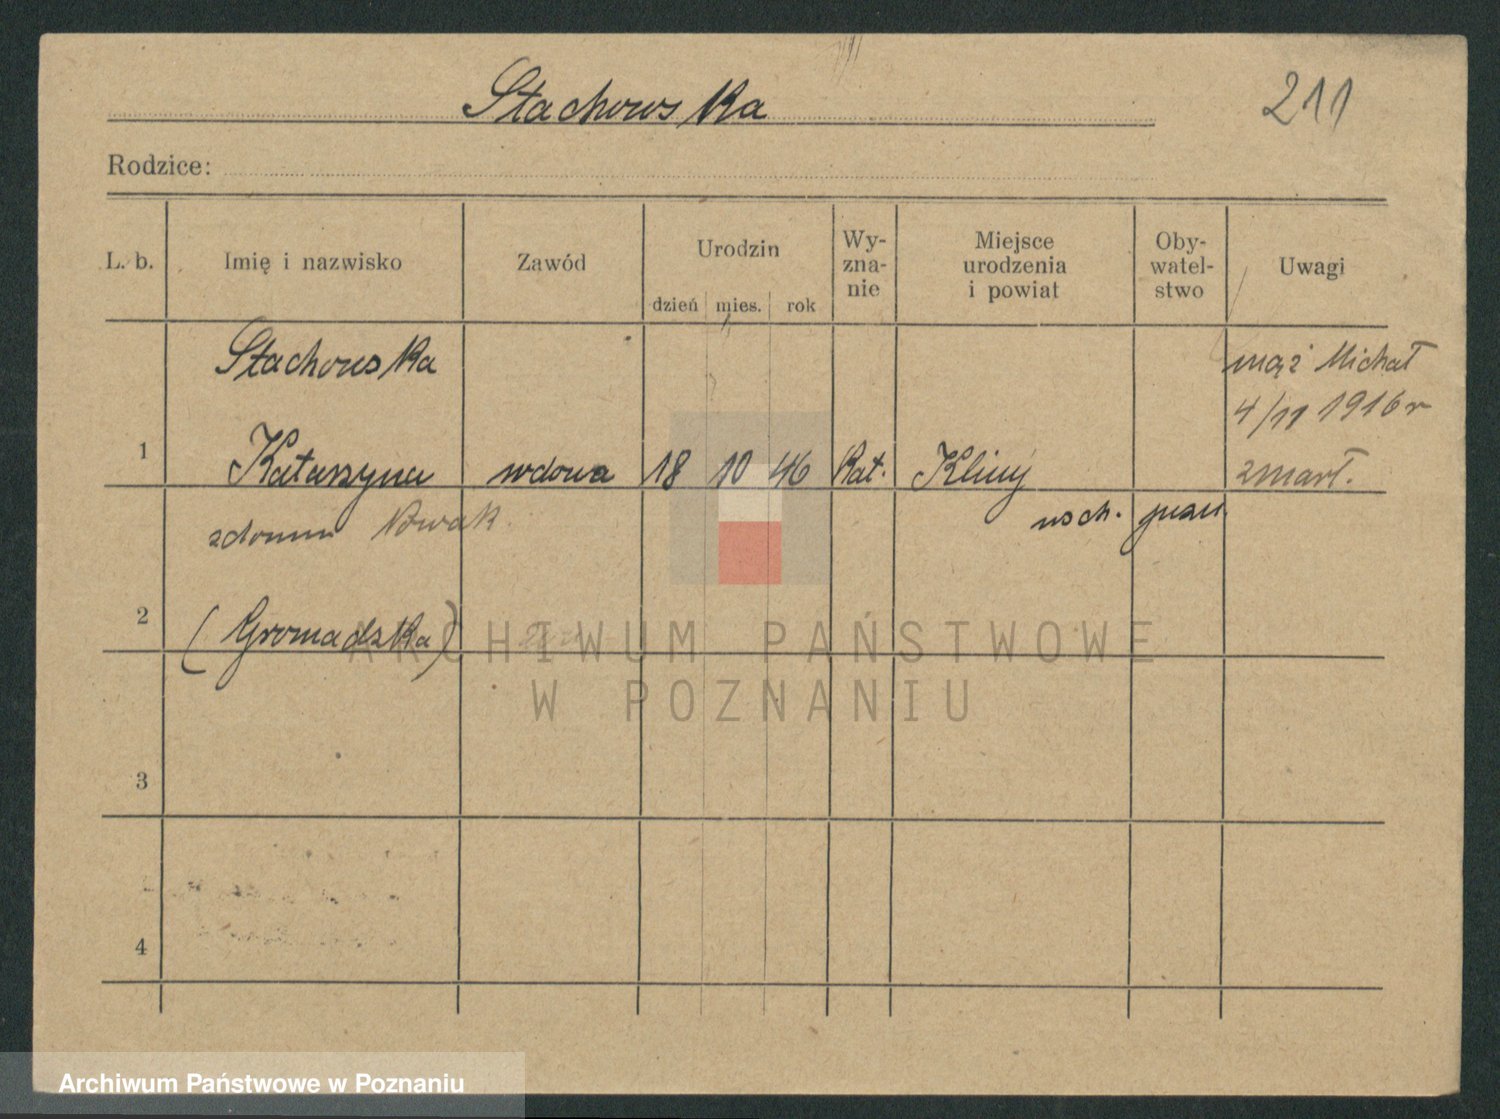 Stachowska
211
Rodzice:
L. b. Imię i nazwisko Zawód Urodzin dzień mies. rok Wy-zna-nie Miejsce urodzenia i powiat Oby-watel-stwo Uwagi
Stachowska mąż Michał
4/11 1916 r
1 Katarzyna wdowa 18 10 46 Kat. Kliny zmarł.
wsch. pozn.
zdomu Nowak.
2 (Gromadzka)
3
4
ARCHIWUM PAŃSTWOWE
W POZNANIU
Archiwum Państwowe w Poznaniu